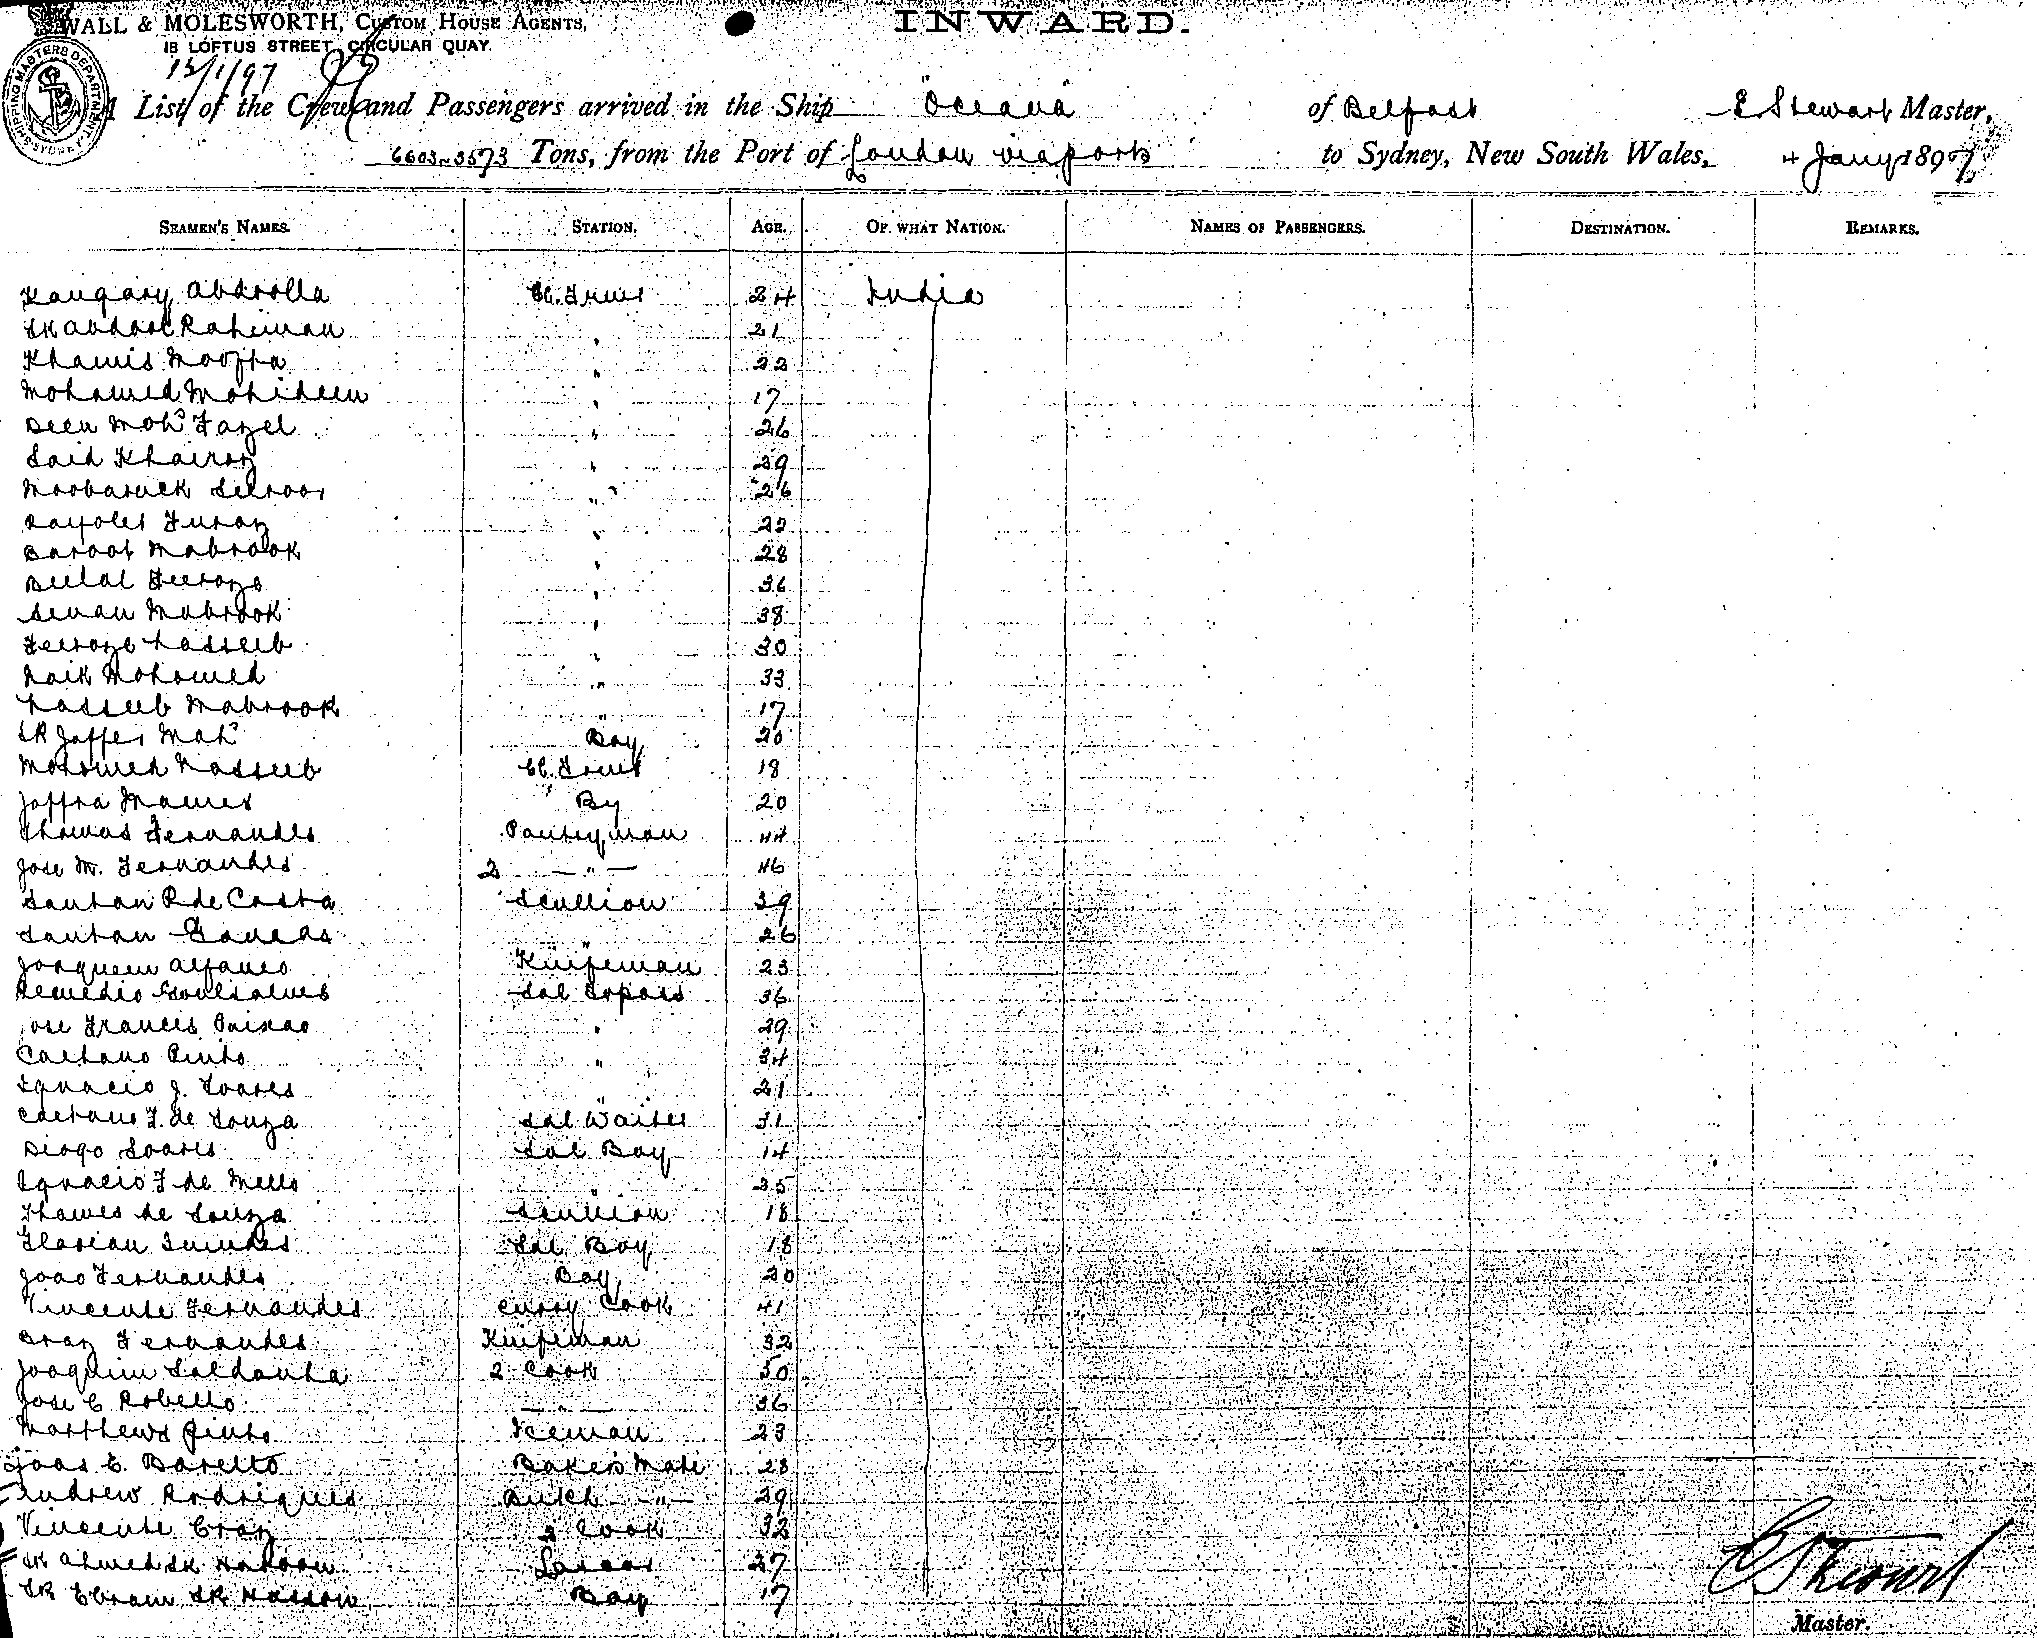 WALL & MOLESWORTH, CUSTOM HOUSE AGENTS,
18 LOFTUS STREET, CIRCULAR QUAY.
INWARD.
SHIPPING MASTERS DEPARTMENT SYDNEY
13/1/97
A List of the Crew and Passengers arrived in the Ship Oceana of Belfast E Stewart Master,
6603~3573 Tons, from the Port of London via ports to Sydney, New South Wales, 4 Jany 1897
SEAMEN'S NAMES. STATION. AGE. OF WHAT NATION. NAMES OF PASSENGERS. DESTINATION. REMARKS.
Abdoolla 24 India
Sk Abdool Rahiman " 21
Khamis Moofta " 22
Mohamed Mohideen " 17
Deen Mohd Fazel " 26
Said Khairaz " 29
Moobaruck " 26
" 22
Baroot Mabrook " 28
Beelal Feeroze " 36
Mabrook " 38
Feeroze Nasseeb " 30
Naik Mohomed " 33
Nasseeb Mabrook " 17
Sk Jaffer Mohd Boy 20
Mohomed Nasseeb 18
Jaffra By 20
Thomas Fernandes Pantryman 44
Jose M. Fernandes 2 — " — 46
Santan R de Costa Scullion 39
Santan " 26
Joaqueem Alfanso Knifeman 23
Remedio Gonlsalves Sal Topass 36
Jose Francis " 29
Caetano Pinto " 34
Ignacio J. Soares " 21
Caetano F. de Souza Sal Waiter 31
Diogo Soares Sal Boy 14
Ignacio F de Mello " 35
Thomes de Souza Scullion 18
Florian Sal Boy 18
Joao Fernandes Boy 20
Vincente Fernandes Curry Cook 41
Braz Fernandes Knifeman 32
Joaquim Saldanha 2 Cook 50
Jose C Robello — " — 36
Matthews Pinto Iceman 23
Joas C. Baretto Bakers Mate 28
Andrew Rodrigues Butch — " — 29
Vincente Braz 3 Cook 32
Sk Ahmed Sk 27
Sk Ebram Sk Hassan Boy 17
E Stewart
Master.